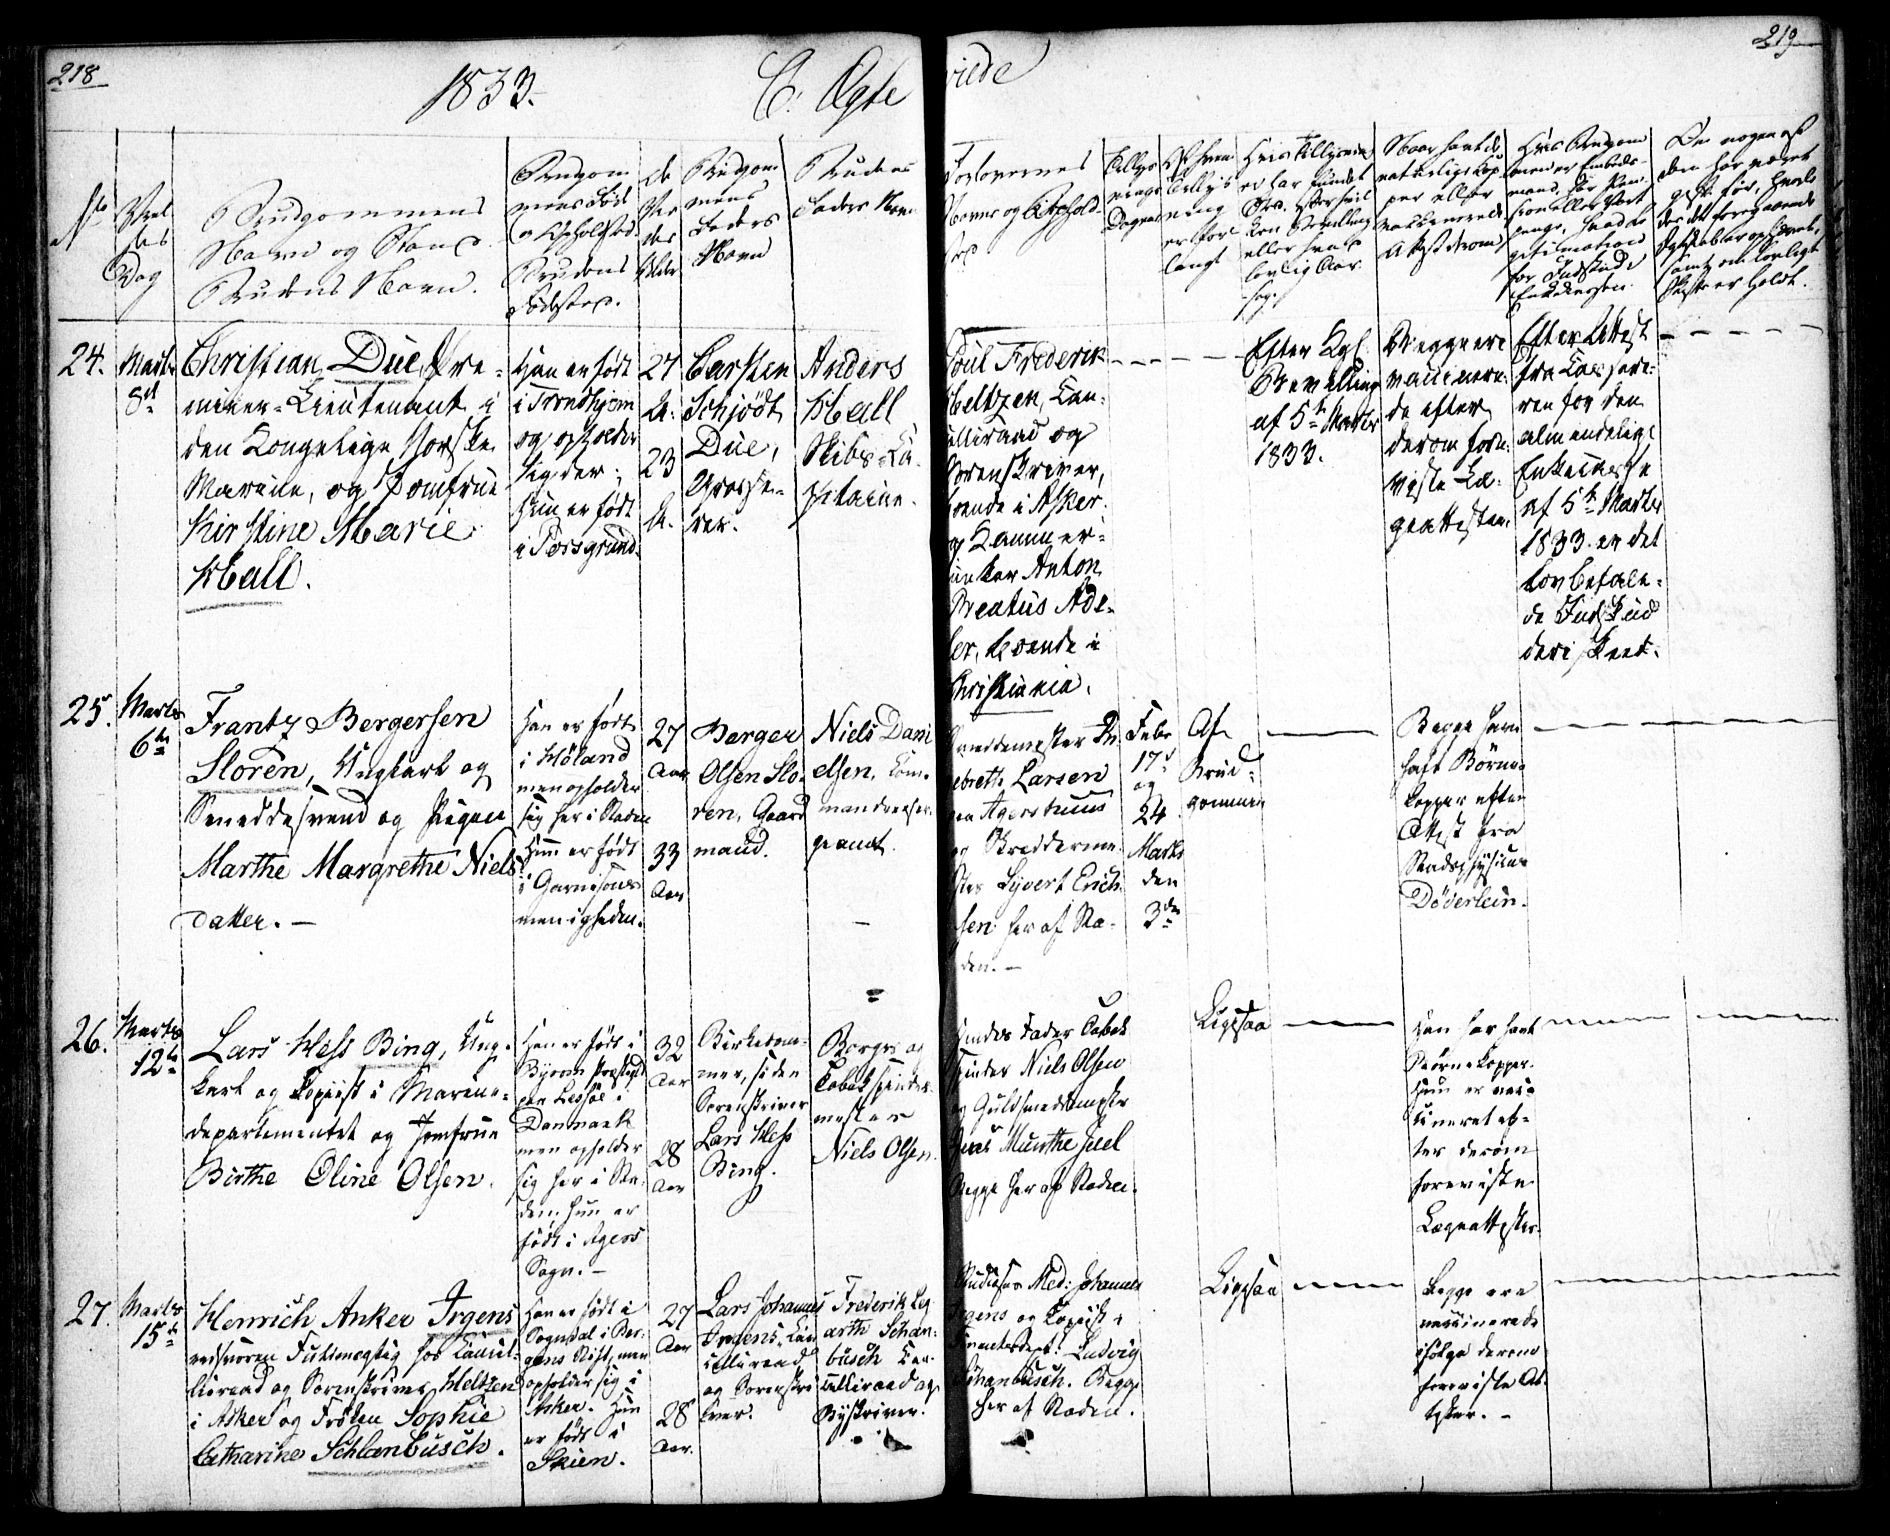 218
1833.
C. Ægte
viede
219
No
Viel
ses
Dag
Brudgommens
Navn og Stand
Brudens Navn.
Brudgom
mens Føde
og Opholdsted
Brudens
Fødested.
De
Vie
des
Alder
Brudgom
mens
Faders
Navn
Brudens
Faders Navn
Forlovernes
Navne og Ophold-
Tillys
nings
Dagene
24.
Marts
8d
Christian Due, Pre-
mier-Lieutenant i
den Kongelige Norske
Marine, og Jomfrue
Kirstine Marie
Møall.
Han er født
i Trondhjem
og opholder
sig der;
Hun er født
i Porsgrund.
27
A.
23
A.
Carsten
Schjødt
Due,
Grosse-
rer.
Anders
Skibs-Ca-
pitaine.
Poul Frederik
Heltzen, Can-
celliraad og
Sorenskriver,
boende i Asker.
og Kammer-
junker Anton
Breatus Ade-
ler, boende i
Christiania.
Efter Kgl.
Bevilling
af 5te Marts
1833.
Begge ere
vaccinere-
de efter
derom fore-
viste Læ-
geattester.
Efter Attest
fra Cassere-
ren for den
almindelige
Enkecasse
af 5te Marts
1833 er det
lovbefale-
de Indskud
deri skeet.
25.
Marts
6te
Frantz Bergersen
Sloren, Ungkarl og
Smeddesvend og Pigen
Marthe Margrethe Niels
datter.
Han er født
i Høland
men opholder
sig her i Staden
Hun er født
i Garnisons
menigheden.
27
Aar
33
Aar
Berger
Olsen Slo-
ren, Gaard
mand.
Niels Dani
elsen, Com-
mandeerser-
geant.
Smeddemester
Larsen
paa Agershuus
og Skreddermes-
ter Syvert Erich-
sen her af Sta-
den.
Febr
17d
og
24
Marts
den
3die
Af
Brud-
gommen
Begge have
haft Børne-
kopper efter
Attest fra
Stadsphysicus
Döderlein.
26.
Marts
12te
Lars Hess Bing, Ung-
karl og Copiist i Marine-
departementet og Jomfrue
Birthe Oline Olsen.
Han er født i
Byrom Præstegjeld
paa Lessøe i
Danmark
men opholder
sig her i Sta-
den; hun er
født i Agers
Sogn.
32
Aar
28
Aar
Birkedom-
mer, siden
Sorenskriver
Lars Hess
Bing.
Borger og
Tobakspinder
mester
Niels Olsen.
Hendes Fader Tobak
spinder Niels Olsen
og Guldsmedmester
Munthe Juel
Begge her af Staden.
Ligesaa
Han har havt
Børnekopper.
Hun er vac-
cineret ef-
ter derom
foreviste
Lægeattester.
27.
Marts
15de
Henrich Anker Irgens
eedsvoren Fuldmægtig hos Cancel-
lieraad og Sorenskriver Heltzen
i Asker og Frøken Sophie
Catharine Schlanbusch.
Han er født i
Sogndal i Ber-
gens Stift, men
opholder sig i
Asker. Hun
er født i
Skien.
27
Aar
28
Aar.
Lars Johannes
Irgens, Can
celliraad
og Sorenskri
ver.
Frederik Leg
arth Schan-
busch Can-
celliraad og
Byskriver.
Studiosus Med: Johannes
Irgens og Copiist i
Ludvig
Schanbusch. Begge
her af Staden.
Ligesaa
Begge ere
vaccinerede
ifølge derom
foreviste At-
tester.